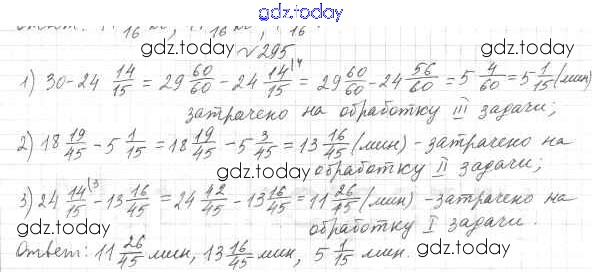 gdz.today
16 16 16
gdz.today √295 gdz.today
1) 30-24 14/15 = 29 60/60 - 24 14/15 \4 = 29 60/60 - 24 56/60 = 5 4/60 = 5 1/15 (мин)
gdz.today затрачено на обработку III задачи;
2) 18 19/45 - 5 1/15 = 18 19/45 - 5 3/45 = 13 16/45 (мин) - затрачено на
gdz.today обработку II задачи;
3) 24 14/15 \3 - 13 16/45 = 24 42/45 - 13 16/45 = 11 26/45 (мин) - затрачено на
gdz.today обработку I задачи.
Ответ: 11 26/45 мин, 13 16/45 мин, 5 1/15 мин. gdz.today
gdz.today